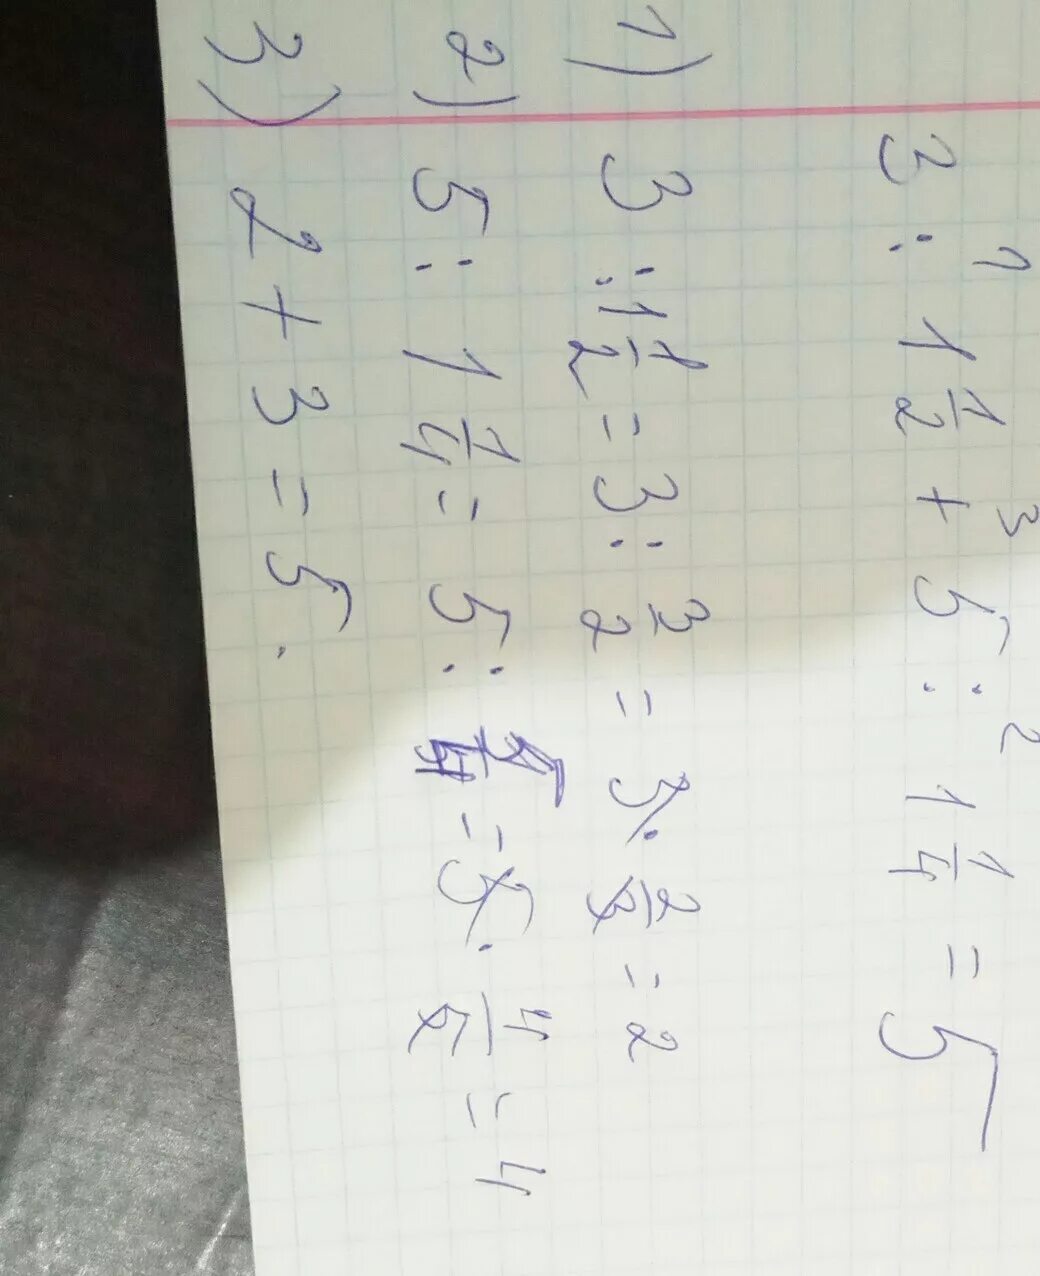 1 3 2
3 : 1 1/2 + 5 : 1 1/4 = 5
1) 3 : 1 1/2 = 3 : 3/2 = 3 · 2/3 = 2
2) 5 : 1 1/4 = 5 : 5/4 = 5 · 4/5 = 4
3) 2 + 3 = 5.